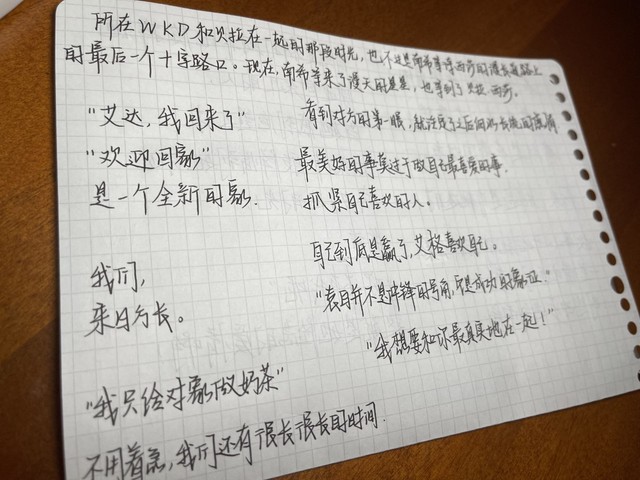 所在WKD和贝拉在一起的那段时光，也不过是南希等待西莎的漫长道路上
的最后一个十字路口。现在，南希等来了漫天的星星，也等到了贝拉·西莎。
"艾达，我回来了"
"欢迎回家"
是一个全新的家.
看到对方的第一眼，就注定了之后的
最美好的事莫过于做自己最喜爱的事.
抓紧自己喜欢的人。
自己到底是赢了，艾格喜欢自己。
我们，
来日方长。
并不是冲锋的号角，是成功的
"我想要和你最真实地在一起！"
"我只给对家做奶茶"
不用着急，我们还有很长很长的时间.